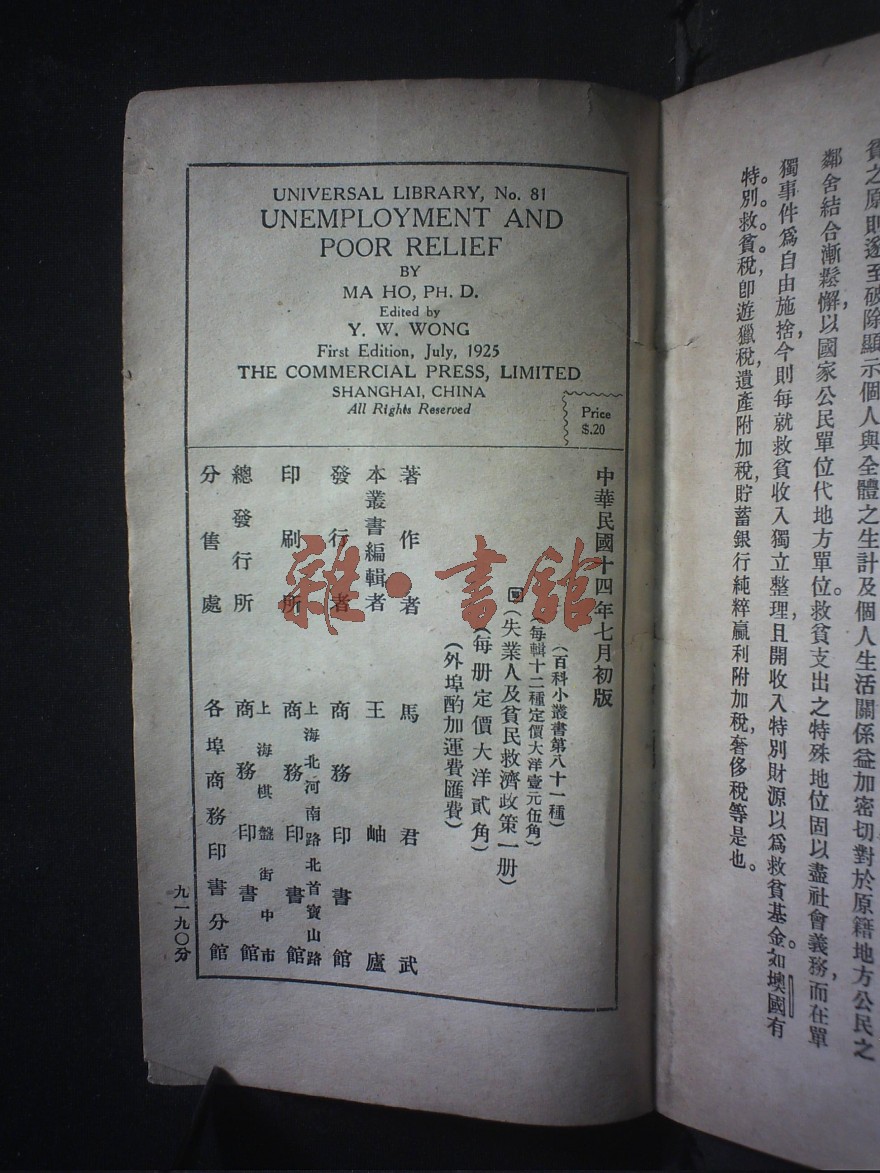 UNIVERSAL LIBRARY, No. 81
UNEMPLOYMENT AND
POOR RELIEF
BY
MA HO, PH. D.
Edited by
Y. W. WONG
First Edition, July, 1925
THE COMMERCIAL PRESS, LIMITED
SHANGHAI, CHINA
All Rights Reserved
Price
$.20
中華民國十四年七月初版
(百科小叢書第八十一種)
(每輯十二種定價大洋壹元伍角)
(失業人及貧民救濟政策一册)
(每册定價大洋貳角)
(外埠酌加運費匯費)
著作者 馬君武
本叢書編輯者 王岫廬
發行者 商務印書館
上海北河南路北首寶山路
印刷所 商務印書館
上海棋盤街中市
總發行所 商務印書館
分售處 各埠商務印書分館
九一九〇分
雜·書館
貧之原則遂至破除顯示個人與全體之生計及個人生活關係益加密切對於原籍地方公民之
鄰舍結合漸鬆懈,以國家公民單位代地方單位。救貧支出之特殊地位固以盡社會義務,而在單
獨事件爲自由施捨,今則每就救貧收入獨立整理,且開收入特別財源以爲救貧基金。如墺國有
特別救貧稅,卽遊獵稅,遺產附加稅,貯蓄銀行純粹贏利附加稅,奢侈稅等是也。